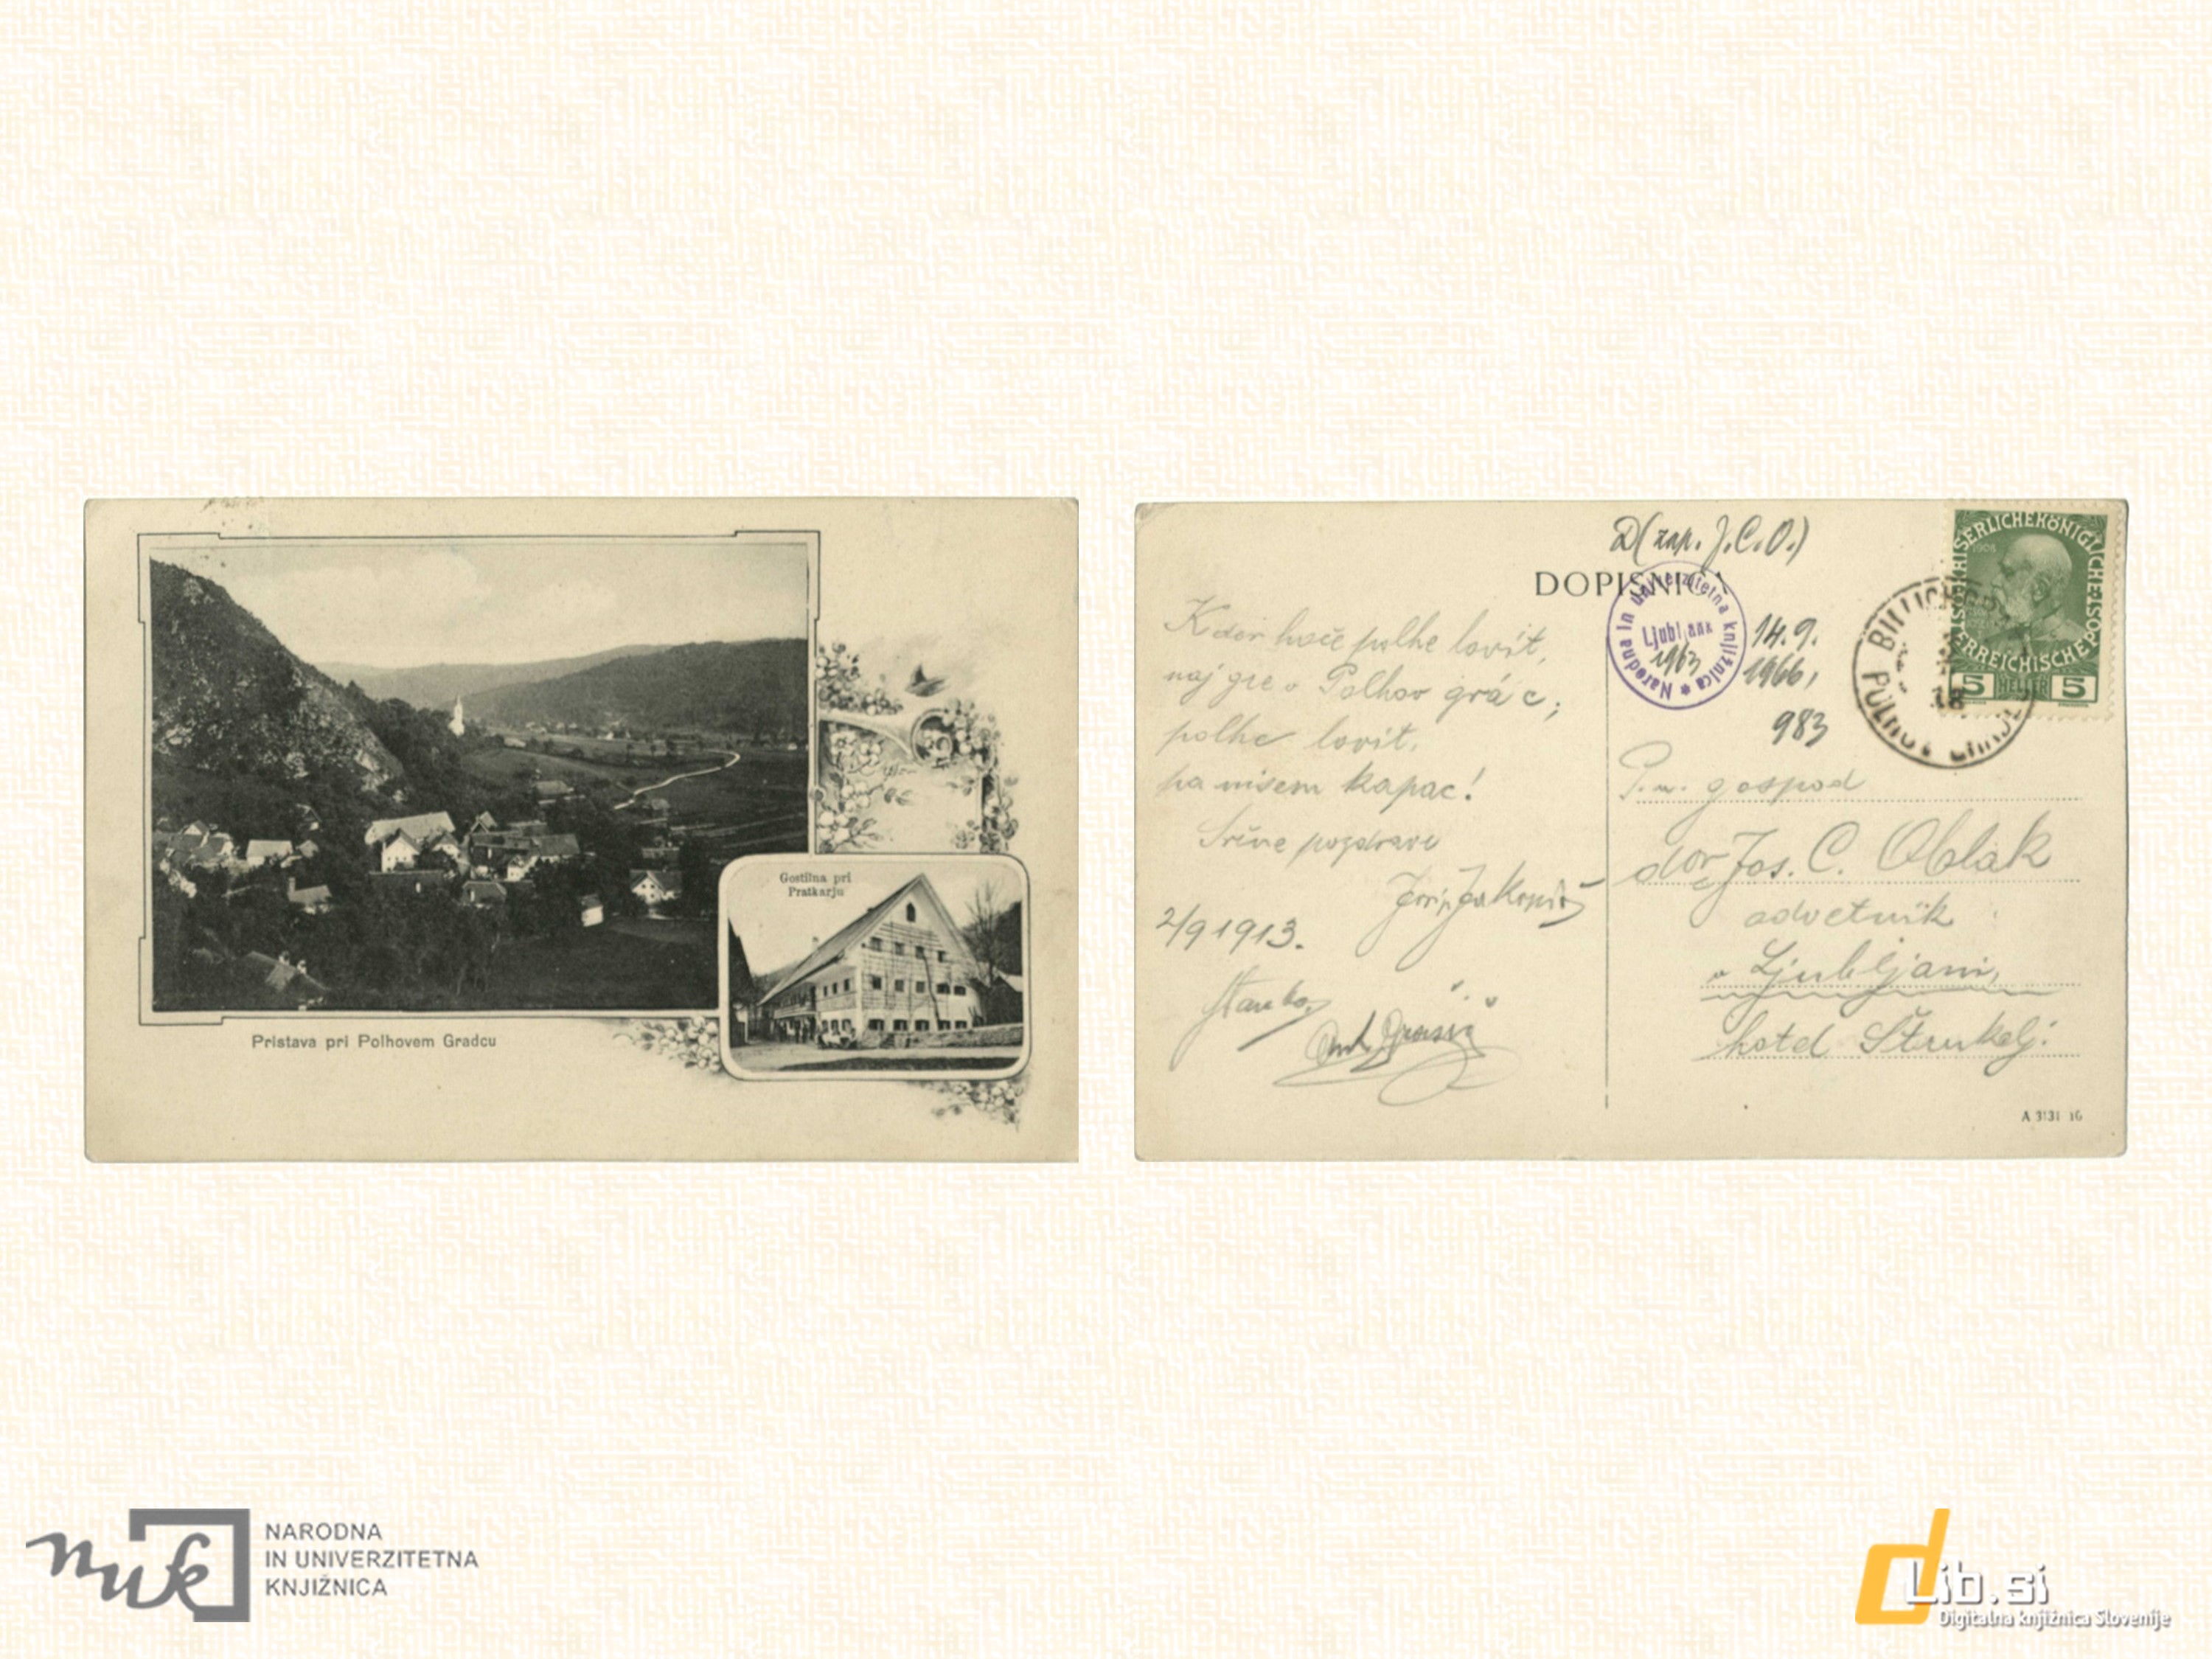 Gostilna pri
Pratkarju
Pristava pri Polhovem Gradcu
D (zap. J. C. O.)
DOPISNICA
Narodna in univerzitetna knjižnica
Ljubljana
1963
14. 9.
1966,
983
KAISERLICHE KÖNIGLICHE ÖSTERREICHISCHE POST
1908
5 HELLER 5
BILLICHGRAZ
POLHOV GRADEC
18
Kdor hoče polhe lovit,
naj gre v Polhov grác;
polhe lovit,
pa nisem kapac!
Srčne pozdrave
2/9 1913.
Stanko
P. n. gospod
dor Jos. C. Oblak
advetnik
v Ljubljani,
hotel Štrukelj.
A 3131 16
nuk
NARODNA
IN UNIVERZITETNA
KNJIŽNICA
dLib.si
Digitalna knjižnica Slovenije